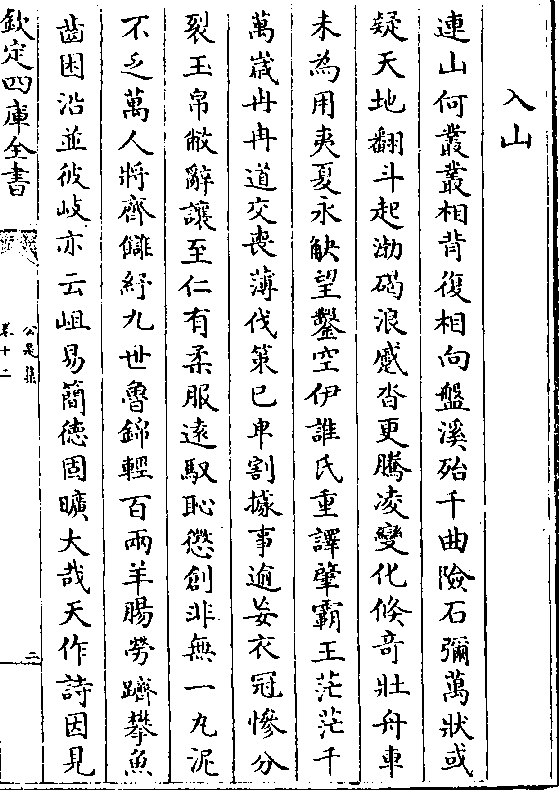 入山
連山何叢叢相背復相向盤溪殆千曲險石彌萬狀或
疑天地翻斗起渤碣浪蹙沓更騰凌變化倐竒壯舟車
未為用夷夏永觖望鑿空伊誰氏重譯肇霸王茫茫千
萬嵗冉冉道交喪薄伐策已卑割據事逾妄衣冠慘分
裂玉帛敝辭讓至仁有柔服遠馭恥懲創非無一丸泥
不乏萬人將齊讎紓九世魯錦輕百兩羊腸勞躋攀魚
齒困沿並彼岐亦云岨易簡徳固曠大哉天作詩因見
欽定四庫全書
公是集
卷十二
三